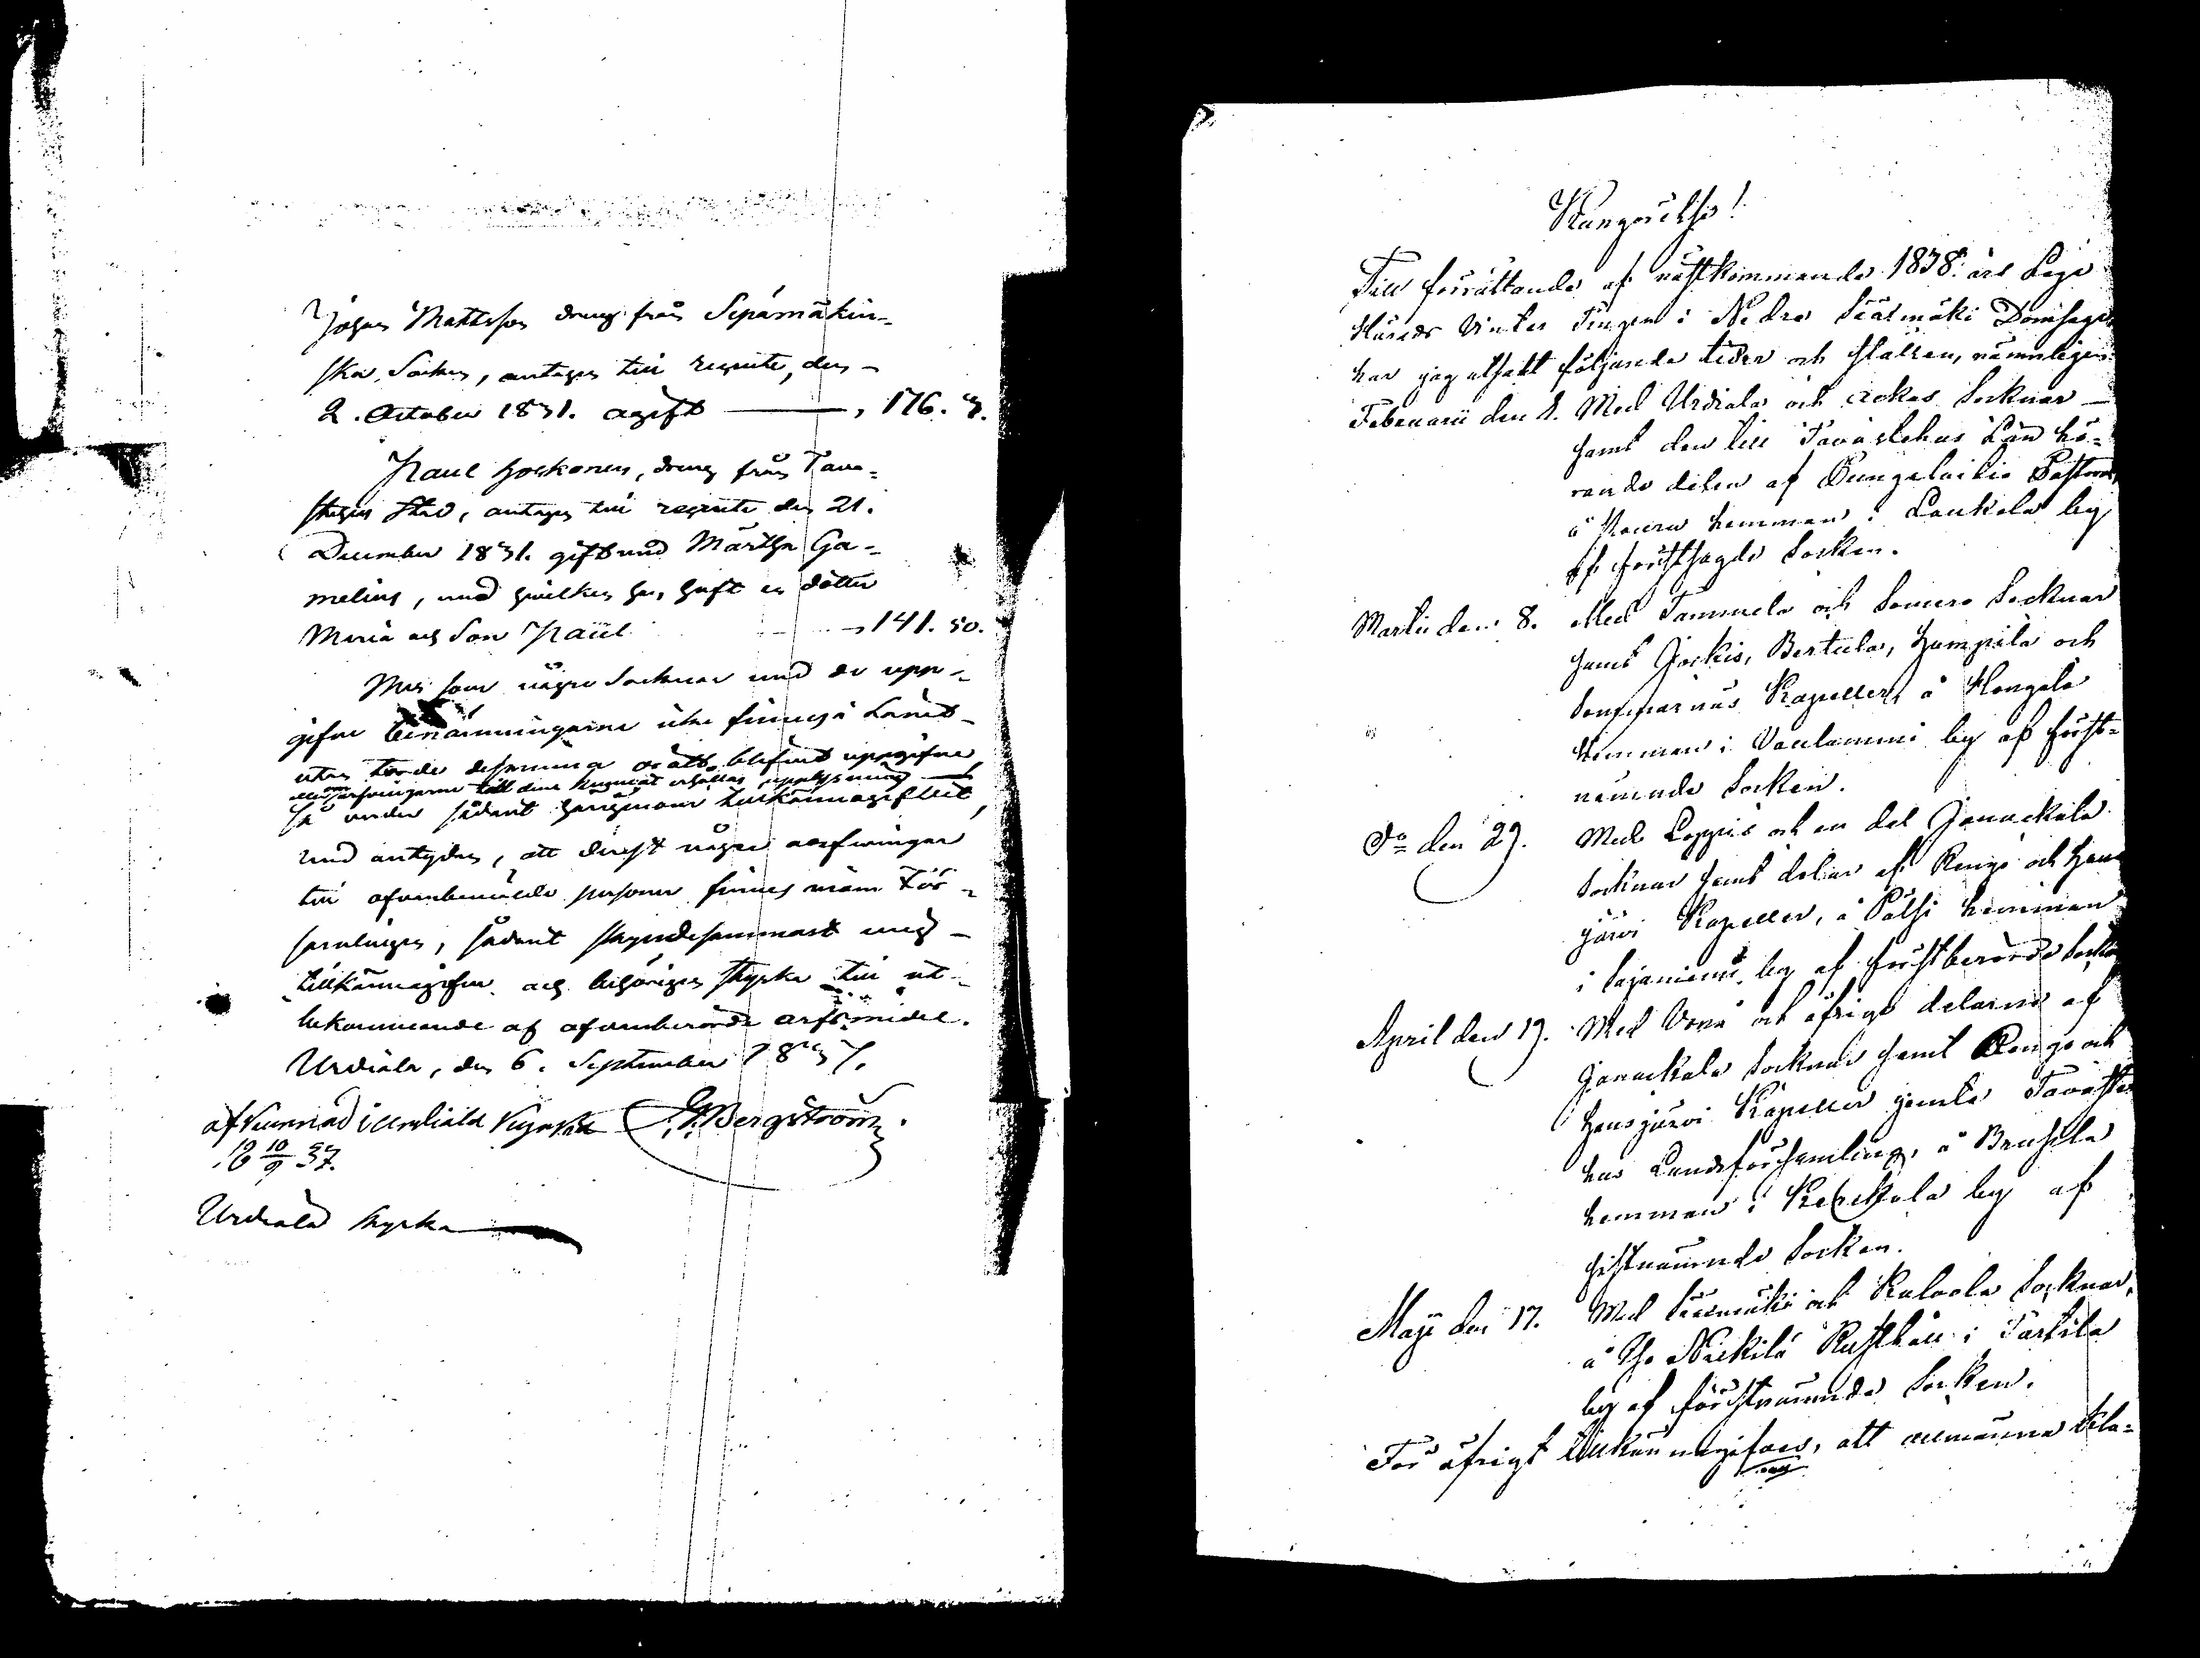 Johan Mattsson dreng från Sepämäkin-
ska Socken, antagen till recrute, den
2. October 1831. ogift ———, 176. 3.
Paul Hoskonen, dreng från Tava-
stehus Stad, antagen till recrute den 21.
December 1831. gift med Märtha Ga-
melius, med hvilken han haft en dotter
Maria och Son Paul 141. 50.
Men som några Socknar med de upp-
gifne benämningarne icke finnas i Landet
utan torde desamma orätt blifvit uppgifne
till dene upplysning
få under sådant tillkännagifvet
med antydan, att derest några arfvingar
till ofvanbemälde personer finnes inom För-
samlingen, sådant skyndesammast mig
tillkännagifva och behörigen styrka till ut-
bekommande af ofvanberörde arfsmedel.
Urdiala, den 6. September 1837.
afkunnad i Urdiala Kyrka G. Bergström.
10/9 37.
Urdiala Kyrka
Kungörelse!
Till förrättande af nästkommande 1838 års Lage
Härads Vinter Tingen i Nedre Sääsmäki Domsaga
har jag utsatt följande tider och ställen, nämnligen:
Februarii den 8. Med Urdiala och Ackas Socknar
samt den till Tavastehus Län hö-
rande delen af Pungelaitio Pastorat,
å hemman i Laukela by
af förstsagde Socken.
Martii den 8. Med Tammela och Somero Socknar
samt Jockis, Bertula, Humpila och
Sommarnäs Kapeller, å Hongela
hemman i Vaulammi by af först-
nämnde Socken.
Do den 29. Med Loppis och en del Janackala
Socknar samt delar af Rengo och Haus-
järvi Kapeller, å Pälsi hemman
i Sajaniemi by af förstberörde Socken
April den 19. Med Vånå och öfrige delarne af
Janackala Socknar samt Rengo och
Hausjärvi Kapeller jemte Tavaste-
hus Landsförsamling, å
hemman i by af
sistnämnde Socken.
Maji den 17. Med Sääsmäki och Kalvola Socknar,
å Rusthåll i Tarttila
by af förstnämnde Socken.
För öfrigt tillkännagifves, att allmänna kla-